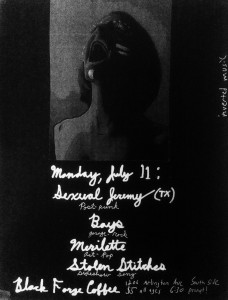 inverted music
Monday, July 11:
Sexual Jeremy (TX)
Post punk
Bays
garage rock
Merilette
Art-Pop
Stolen Stitches
sideshow song
Black Forge Coffee
1206 Arlington Ave South Side
$5 all ages 6:30 prompt!